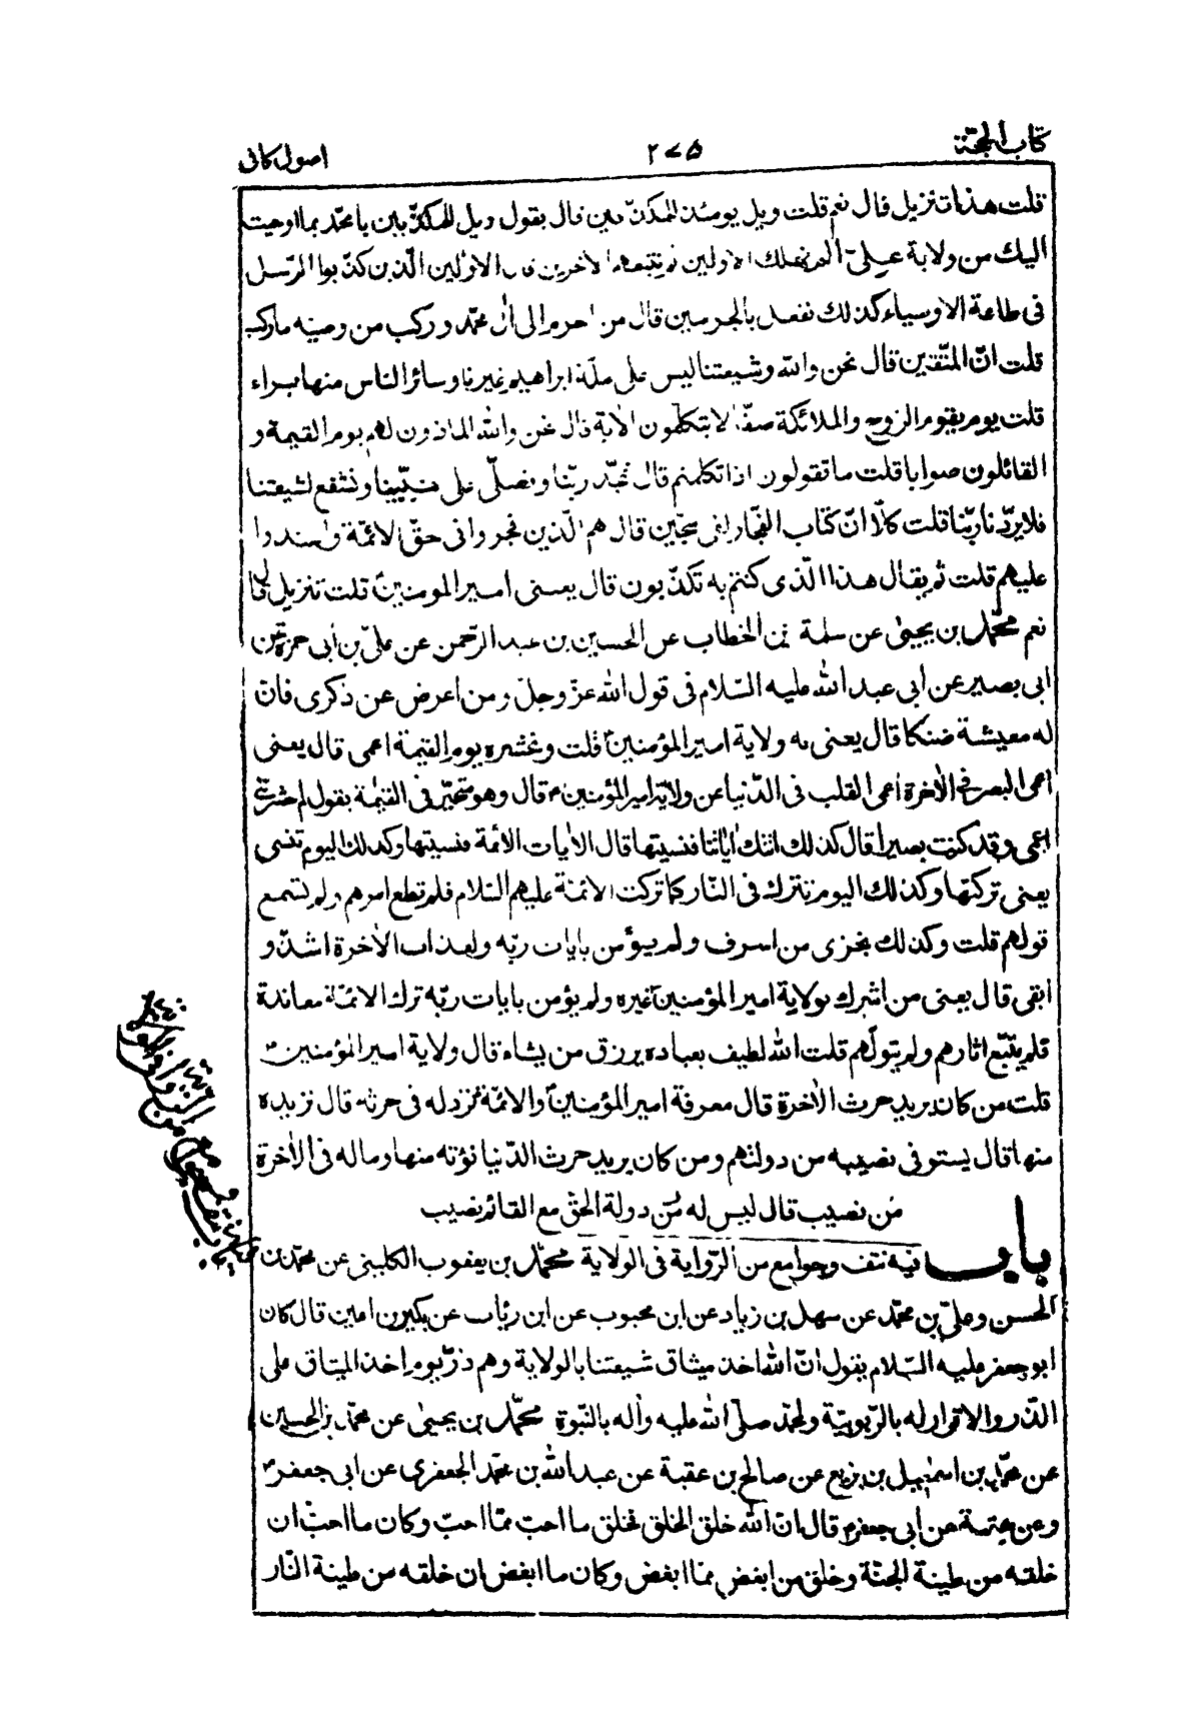 كتاب الحجّة
٢٧٥
اصول كافى
قلت هذا تنزيل قال نعم قلت ويل يومئذ للمكذّبين قال يقول ويل للمكذّبين يا محمّد بما اوحيت
اليك من ولاية علىّ الم نهلك الاولين ثم نتبعهم الاخرين قال الاوّلين الّذين كذّبوا الرّسل
فى طاعة الاوصياء كذلك نفعل بالمجرمين قال من اجرم الى ال محمّد و ركب من وصيّه ما ركب
قلت انّ المتّقين قال نحن والله وشيعتنا ليس على ملّة ابراهيم غيرنا وسائر الناس منها براء
قلت يوم يقوم الروح والملائكة صفّا لا يتكلّمون الاية قال نحن والله الماذون لهم يوم القيمة و
القائلون صوابا قلت ما تقولون اذا تكلمتم قال نمجّد ربّنا ونصلّى على نبيّنا ونشفع لشيعتنا
فلا يردّنا ربّنا قلت كلّا انّ كتاب الفجّار لفى سجّين قال هم الّذين فجروا فى حقّ الائمّة واعتدوا
عليهم قلت ثم يقال هذا الّذى كنتم به تكذّبون قال يعنى امير المومنين قلت تنزيل قال
نعم محمّد بن يحيى عن سلمة بن الخطاب عن الحسين بن عبد الرّحمن عن علىّ بن أبى حمزة عن
ابى بصير عن ابى عبد الله عليه السّلام فى قول الله عزّ وجلّ ومن اعرض عن ذكرى فانّ
له معيشة ضنكا قال يعنى به ولاية امير المؤمنين قلت ونحشره يوم القيمة اعمى قال يعنى
اعمى البصر فى الاخرة اعمى القلب فى الدّنيا عن ولاية امير المؤمنين قال وهو متحيّر فى القيمة يقول لم حشرتنى
اعمى وقد كنت بصيرا قال كذلك اتتك اياتنا فنسيتها قال الايات الائمة فنسيتها وكذلك اليوم تنسى
يعنى تركتها وكذلك اليوم تترك فى النّار كما تركت الائمّة عليهم السّلام فلم تطع امرهم ولم تستمع
قولهم قلت وكذلك نجزى من اسرف ولم يؤمن بايات ربّه ولعذاب الاخرة اشدّ و
ابقى قال يعنى من اشرك بولاية امير المؤمنين غيره ولم يؤمن بايات ربّه ترك الائمّة معاندة
فلم يتّبع اثارهم ولم يتولّهم قلت الله لطيف بعباده يرزق من يشاء قال ولاية امير المؤمنين
قلت من كان يريد حرث الاخرة قال معرفة امير المؤمنين والائمّة نزد له فى حرثه قال نزيده
منها قال يستوفى نصيبه من دولتهم ومن كان يريد حرث الدّنيا نؤته منها وماله فى الاخرة
من نصيب قال ليس له من دولة الحقّ مع القائم نصيب
باب فيه نتف وجوامع من الرّواية فى الولاية محمّد بن يعقوب الكلينى عن محمّد بن
الحسن وعلىّ بن محمّد عن سهل بن زياد عن ابن محبوب عن ابن رئاب عن بكير بن اعين قال كان
ابو جعفر عليه السّلام يقول انّ الله اخذ ميثاق شيعتنا بالولاية وهم ذرّ يوم اخذ الميثاق على
الذّر والاقرار له بالرّبوبيّة ولمحمّد صلّى الله عليه واله بالنّبوّة محمّد بن يحيى عن محمّد بن الحسين
عن محمّد بن اسمعيل بن بزيع عن صالح بن عقبة عن عبد الله بن محمّد الجعفرى عن ابى جعفر
وعن عقبة عن ابى جعفر قال انّ الله خلق الخلق فخلق ما احبّ ممّا احبّ وكان ما احبّ ان
خلقه من طينة الجنّة وخلق من ابغض ممّا ابغض وكان ما ابغض ان خلقه من طينة النّار